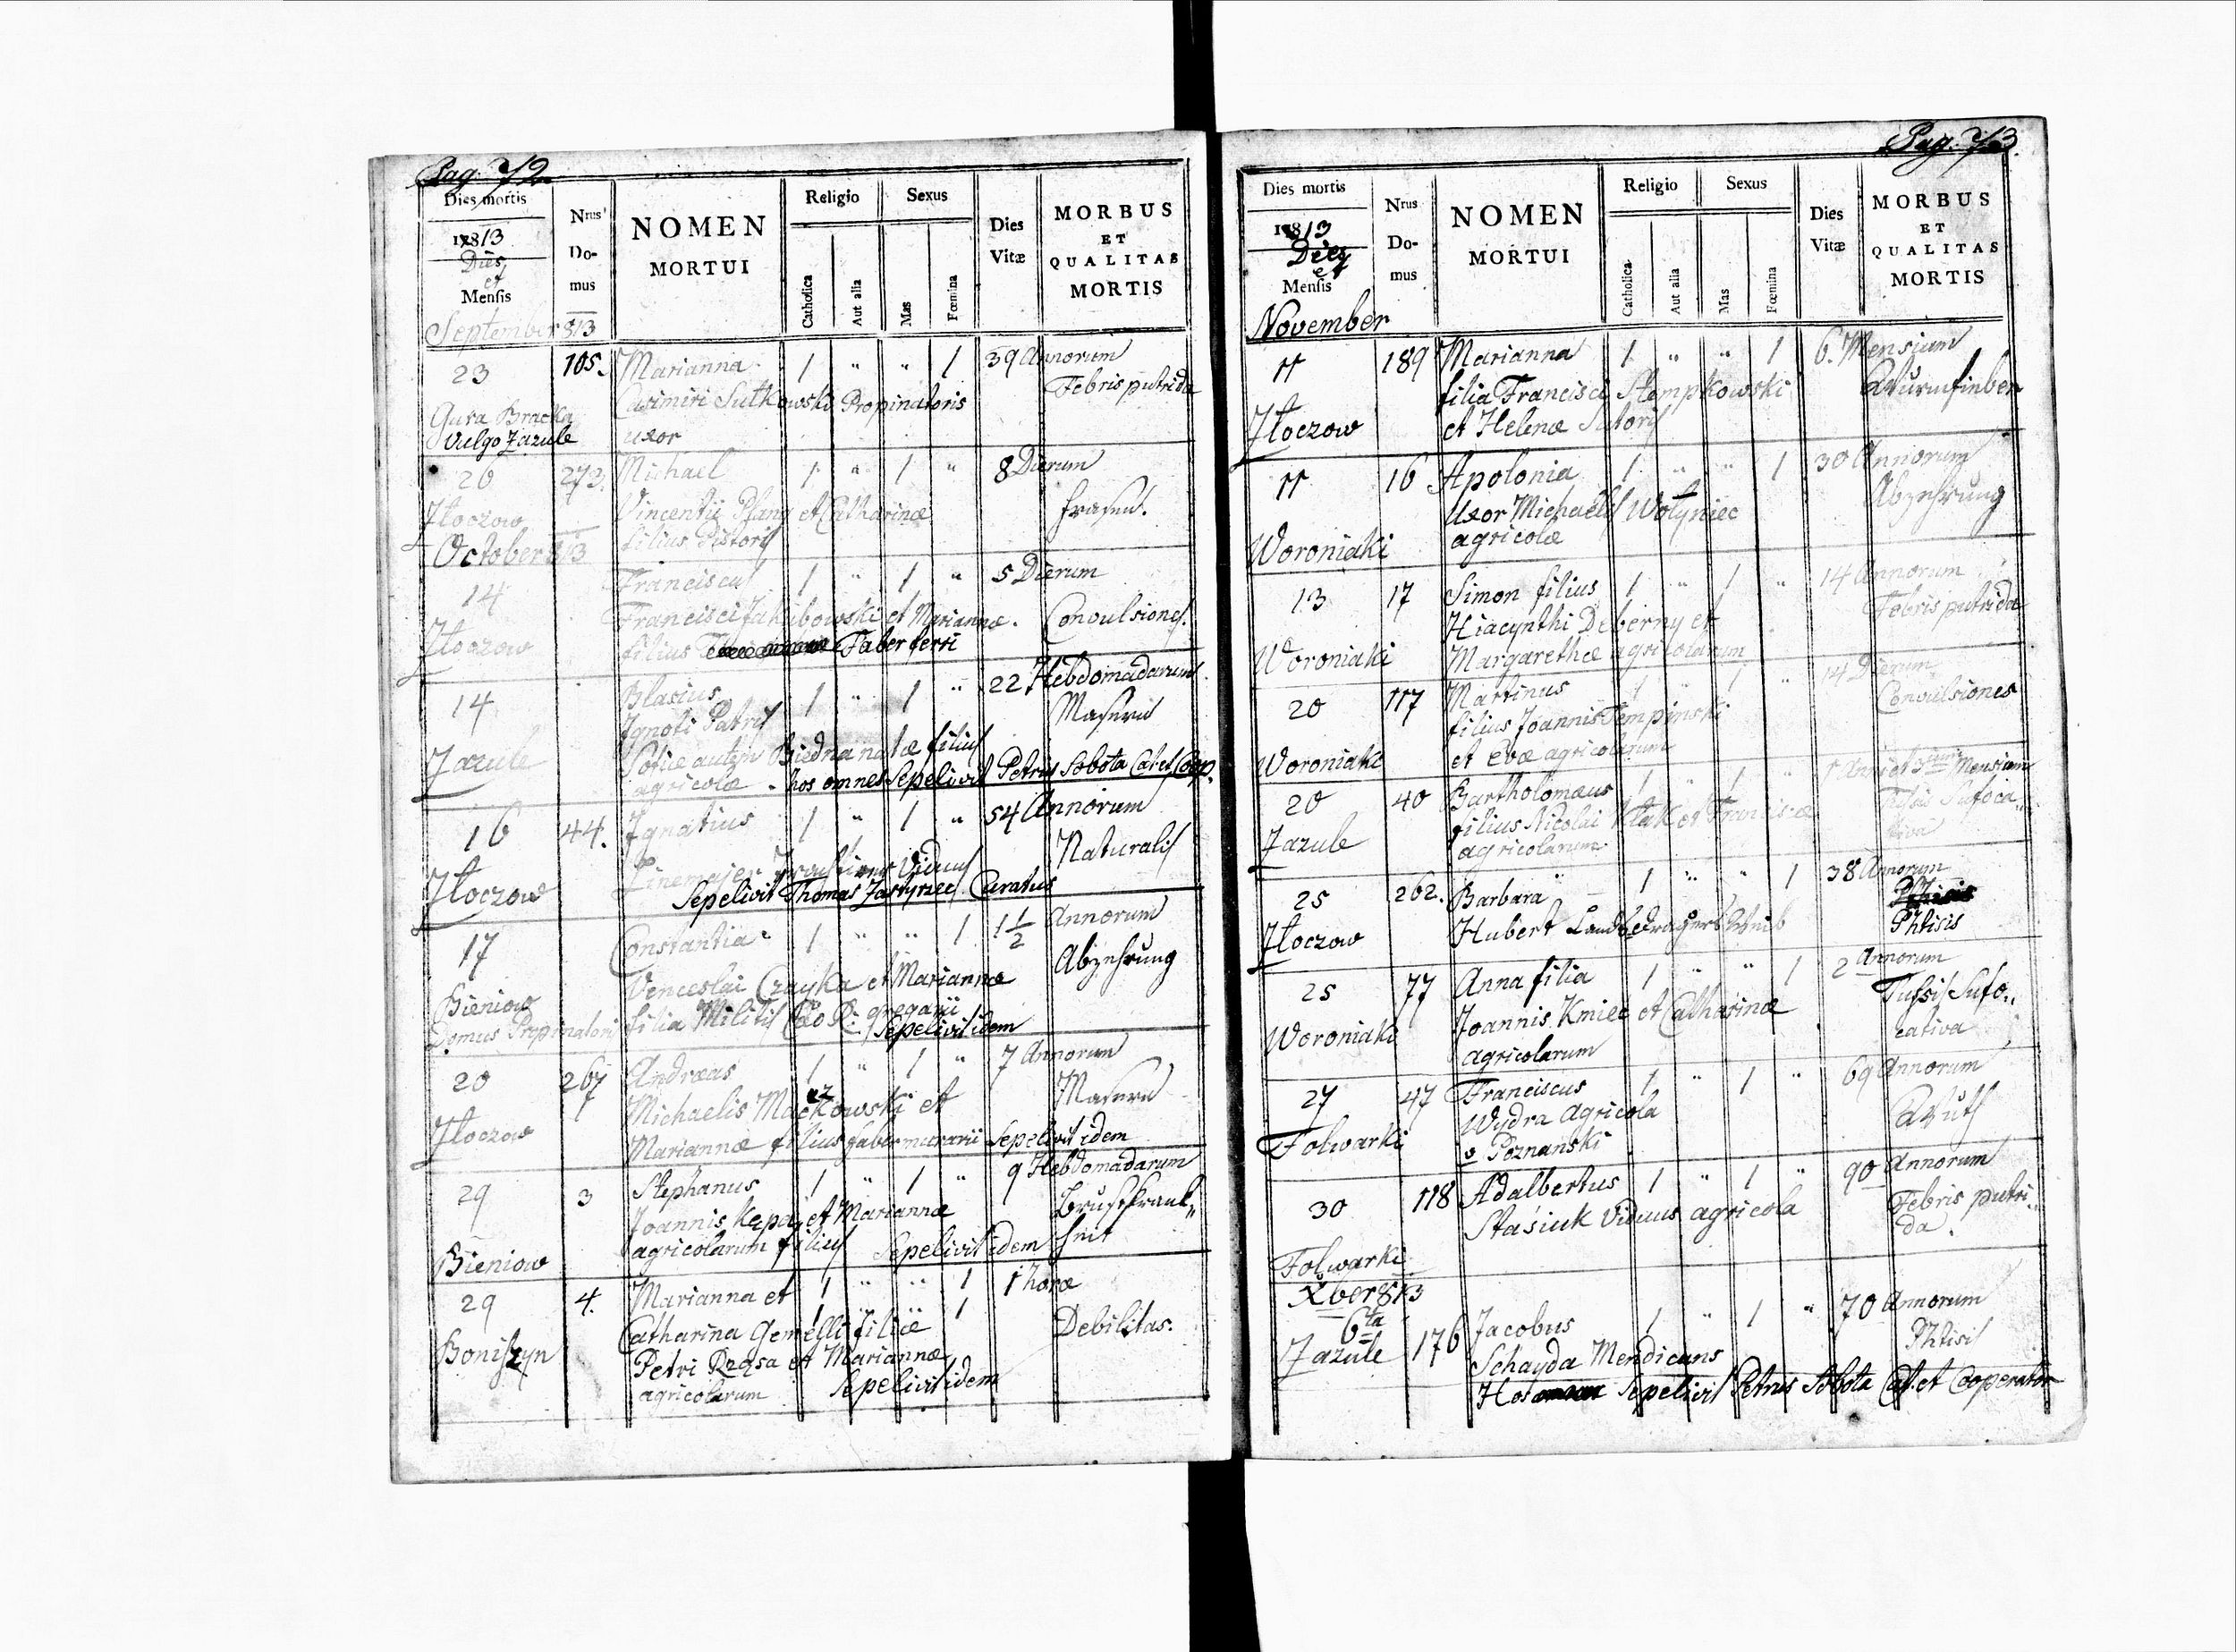 Pag. 72
Dies mortis
Nrus
Do-
mus
NOMEN
MORTUI
Religio
Sexus
Catholica
Aut alia
Mas
Fœmina
Dies
Vitæ
MORBUS
ET
QUALITAS
MORTIS
1813
Dies
et
Mensis
September 813
23 105. Marianna 1 " " 1 39 Annorum
Casimiri Sutkowski Propinatoris Febris putrida
Gura Bracka
vulgo Jazule uxor
26 273. Michael 1 " 1 " 8 Dierum
Vincentii et Catharinæ
Złoczow filius Pistoris
October 813
14 Franciscus 1 " 1 " 5 Dierum
Francisci Jakubowski et Mariannæ. Convulsiones.
Złoczow filius Faber ferri
14 Blasius 1 " 1 " 22 Hebdomadarum
Ignoti Patris Masern
Jazule Sofiæ autem Biedna natæ filius
agricolæ - hos omnes Sepelivit Petrus Sobota Cat et Coop.
16 44. Ignatius 1 " 1 " 54 Annorum
Viduus Naturalis
Złoczow Sepelivit Thomas Curatus
17 Constantia 1 " " 1 1 1/2 Annorum
Venceslai Czayka et Mariannæ Abzehrung
Bieniow filia Militis gregarii
Domus Propinatoris Sepelivit idem
20 267 Andreas 1 " 1 " 7 Annorum
Michaelis Mackowski et Masern
Złoczow Mariannæ filius fabermurarii Sepelivit idem
29 3 Stephanus 1 " 1 " 9 Hebdomadarum
Joannis Kepa et Mariannæ Brustkrank„
Bieniow agricolarum filius Sepelivit idem heit
29 4. Marianna et 1 " " 1 1 horæ
Catharina Gemelli filiæ 1 " " 1 Debilitas.
Boniszyn Petri Rząsa et Mariannæ
agricolarum Sepelivit idem
Pag. 73
Dies mortis
Nrus
Do-
mus
NOMEN
MORTUI
Religio
Sexus
Catholica
Aut alia
Mas
Fœmina
Dies
Vitæ
MORBUS
ET
QUALITAS
MORTIS
1813
Dies
et
Mensis
November
11 189 Marianna 1 " " 1 6. Mensium
filia Francisci Stempkowski
Złoczow et Helenæ Sutoris
11 16 Apolonia 1 " " 1 30 Annorum
Uxor Michaelis Wołyniec Abzehrung
Woroniaki agricolæ
13 17 Simon filius 1 " 1 " 14 Annorum
Hiacynthi Deberny et Febris putrida
Woroniaki Margarethæ agricolarum
20 117 Martinus 1 " 1 " 14 Dierum
filius Joannis Tempinski Convulsiones
Woroniaki et Evæ agricolarum
20 40 Bartholomæus 1 " 1 " 1 Anni et 3 Mensium
filius Nicolai Ktak et Franciscæ Tussis Sufoca„
Jazule agricolarum tiva
25 262. Barbara 1 " " 1 38 Annorum
Złoczow Hubert Landsdragers Weib Phtisis
25 77 Anna filia 1 " " 1 2 Annorum
Joannis Kmiec et Catharinæ Tussis Sufo„
Woroniaki agricolarum cativa
27 47 Franciscus 1 " 1 " 69 Annorum
Wydra Agricola
Folwarki Poznanski
30 118 Adalbertus 1 " 1 " 90 Annorum
Stasiuk Viduus agricola Febris putri„
da.
Folwarki
Xber 813
6ta 176 Jacobus 1 " 1 " 70 Annorum
Jazule Schayda Mendicans Phtisis
Hos Sepelivit Petrus Sobota Cat. et Cooperator